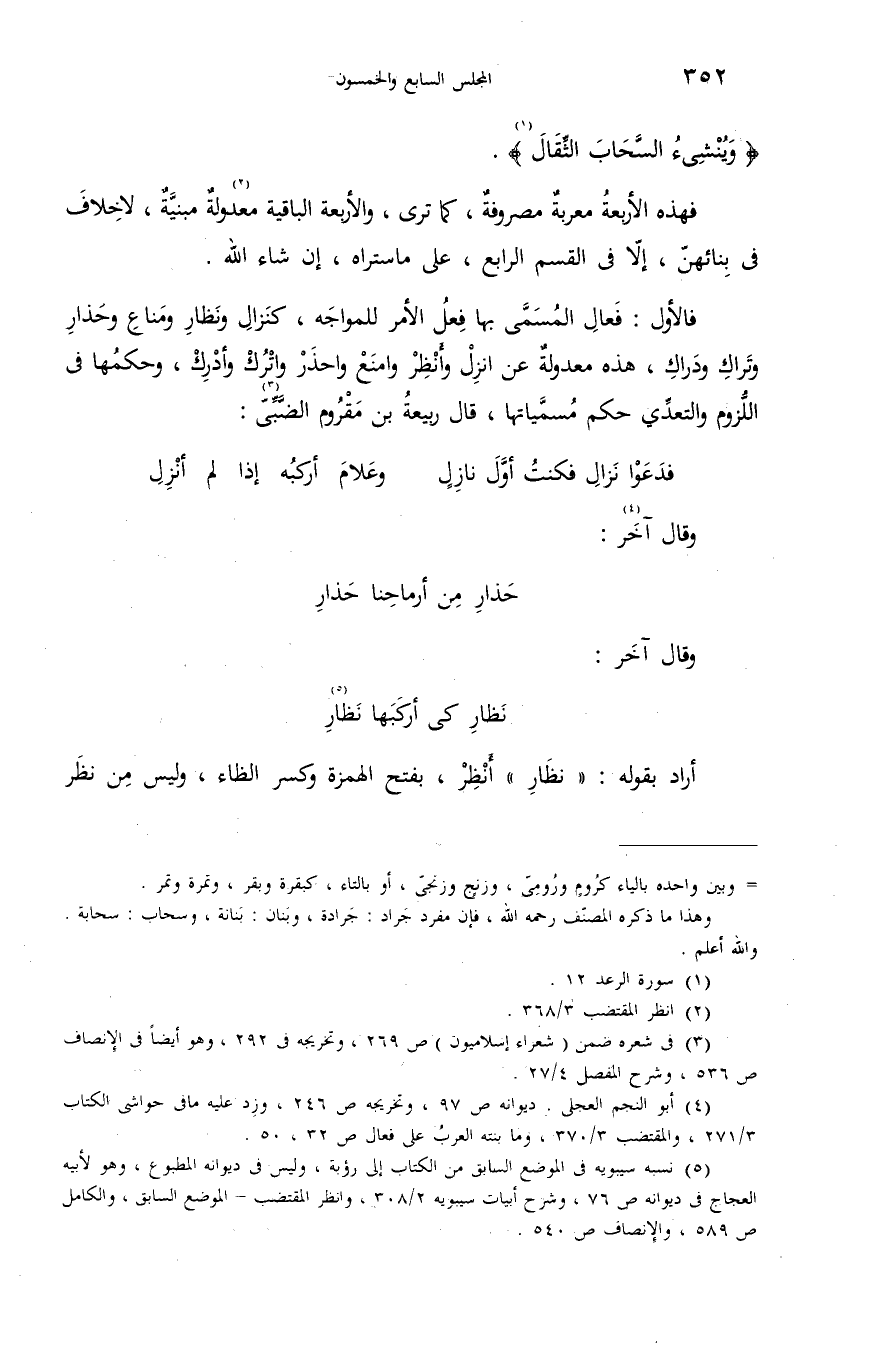 ٣٥٢ المجلس السابع والخمسون
﴿ وَيُنْشِىءُ السَّحَابَ الثِّقَالَ ﴾(١) .
فهذه الأربعةُ معربةٌ مصروفةٌ ، كما ترى ، والأربعة الباقية معدولةٌ(٢) مبنيَّةٌ ، لاخِلافَ
فى بِنائهنّ ، إلّا فى القسم الرابع ، على ماستراه ، إن شاء الله .
فالأول : فَعالِ المُسَمَّى بها فِعلُ الأمر للمواجَه ، كنَزالِ ونَظارِ ومَناعِ وحَذارِ
وتَراكِ ودَراكِ ، هذه معدولةٌ عن انزِلْ وأَنْظِرْ وامنَعْ واحذَرْ واتْرُكْ وأدْرِكْ ، وحكمُها فى
اللُّزوم والتعدِّي حكم مُسمَّياتها ، قال ربيعةُ بن مَقْرُوم الضَّبِّىّ(٣) :
فدَعَوْا نَزالِ فكنتُ أوَّلَ نازِلٍ وعَلامَ أركبُه إذا لم أنْزِلِ
وقال آخَر(٤) :
حَذارِ مِن أرماحِنا حَذارِ
وقال آخَر :
نَظارِ كى أركَبَها نَظارِ(٥)
أراد بقوله : « نظَارِ » أَنْظِرْ ، بفتح الهمزة وكسر الظاء ، وليس مِن نظَر
= وبين واحده بالياء كرُوم ورُومىّ ، وزنج وزنجىّ ، أو بالتاء ، كبقرة وبقر ، وتمرة وتمر .
وهذا ما ذكره المصنّف رحمه الله ، فإن مفرد جَراد : جَرادة ، وبَنان : بَنانة ، وسحاب : سحابة .
والله أعلم .
(١) سورة الرعد ١٢ .
(٢) انظر المقتضب ٣٦٨/٣ .
(٣) فى شعره ضمن ( شعراء إسلاميون ) ص ٢٦٩ ، وتخريجه فى ٢٩٢ ، وهو أيضاً فى الإنصاف
ص ٥٣٦ ، وشرح المفصل ٢٧/٤ .
(٤) أبو النجم العجلى . ديوانه ص ٩٧ ، وتخريجه ص ٢٤٦ ، وزِد عليه مافى حواشى الكتاب
٢٧١/٣ ، والمقتضب ٣٧٠/٣ ، وما بنته العربُ على فعال ص ٣٢ ، ٥٠ .
(٥) نسبه سيبويه فى الموضع السابق من الكتاب إلى رؤبة ، وليس فى ديوانه المطبوع ، وهو لأبيه
العجاج فى ديوانه ص ٧٦ ، وشرح أبيات سيبويه ٣٠٨/٢ ، وانظر المقتضب – الموضع السابق ، والكامل
ص ٥٨٩ ، والإنصاف ص ٥٤٠ .